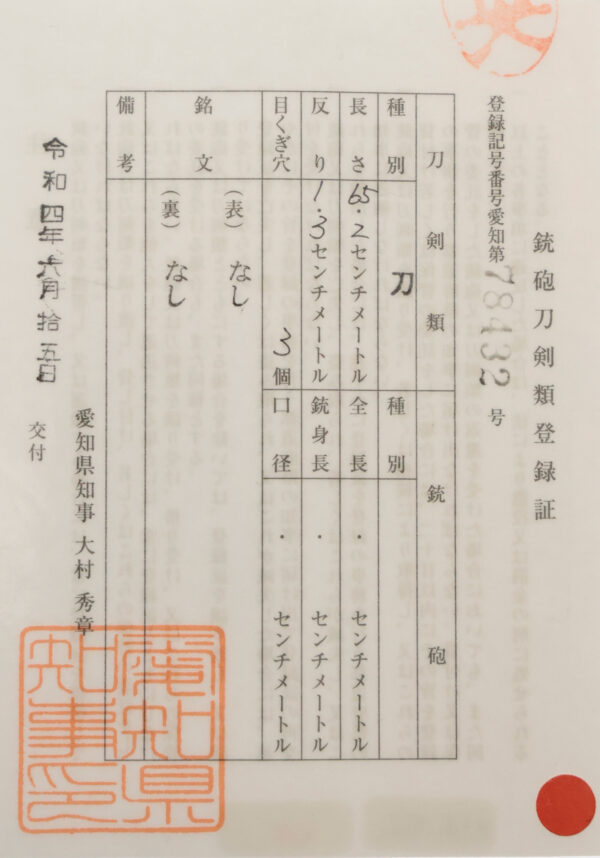 銃砲刀剣類登録証
登録記号番号愛知第78432号
刀剣類
種別 刀
長さ 65.2センチメートル
反り 1.3センチメートル
目くぎ穴 3個
銘文
(表) なし
(裏) なし
備考
銃砲
種別
全長 ・ センチメートル
銃身長 ・ センチメートル
口径 ・ センチメートル
令和四年六月拾五日
交付
愛知県知事 大村 秀章
愛知県
知事印